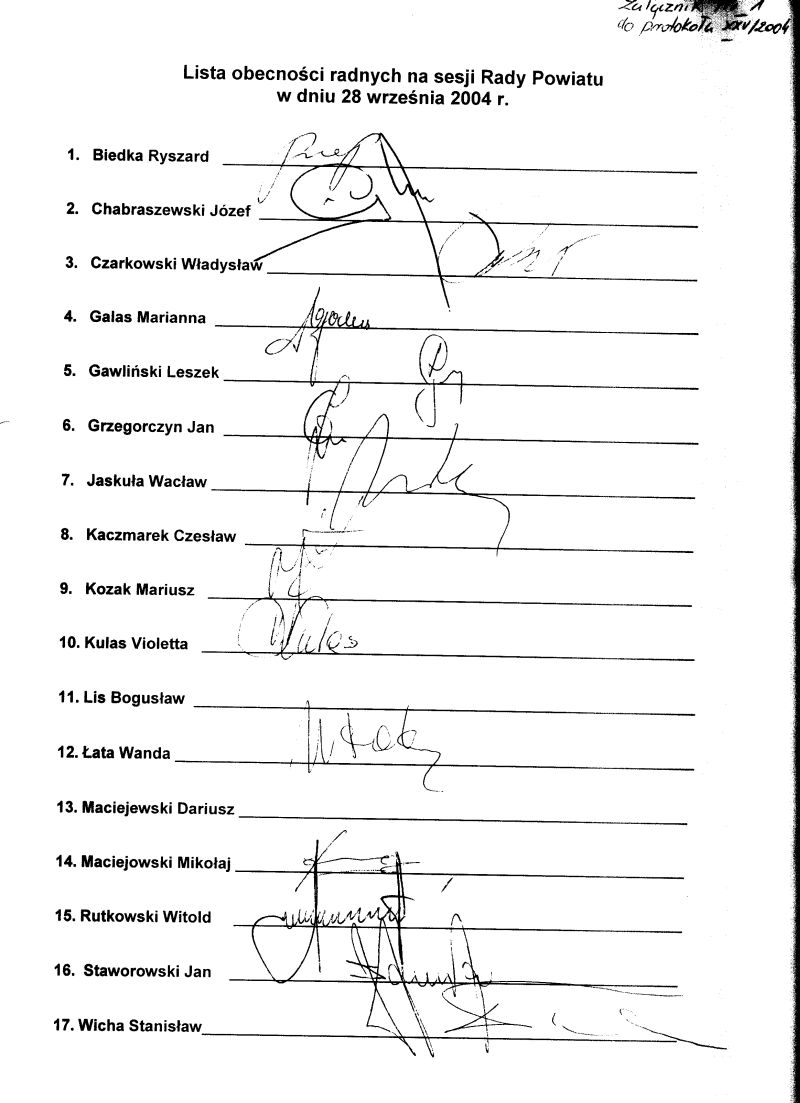 Załącznik Nr 1
do protokołu XXV/2004
Lista obecności radnych na sesji Rady Powiatu
w dniu 28 września 2004 r.
1. Biedka Ryszard
2. Chabraszewski Józef
3. Czarkowski Władysław
4. Galas Marianna
5. Gawliński Leszek
6. Grzegorczyn Jan
7. Jaskuła Wacław
8. Kaczmarek Czesław
9. Kozak Mariusz
10. Kulas Violetta
11. Lis Bogusław
12. Łata Wanda
13. Maciejewski Dariusz
14. Maciejowski Mikołaj
15. Rutkowski Witold
16. Staworowski Jan
17. Wicha Stanisław